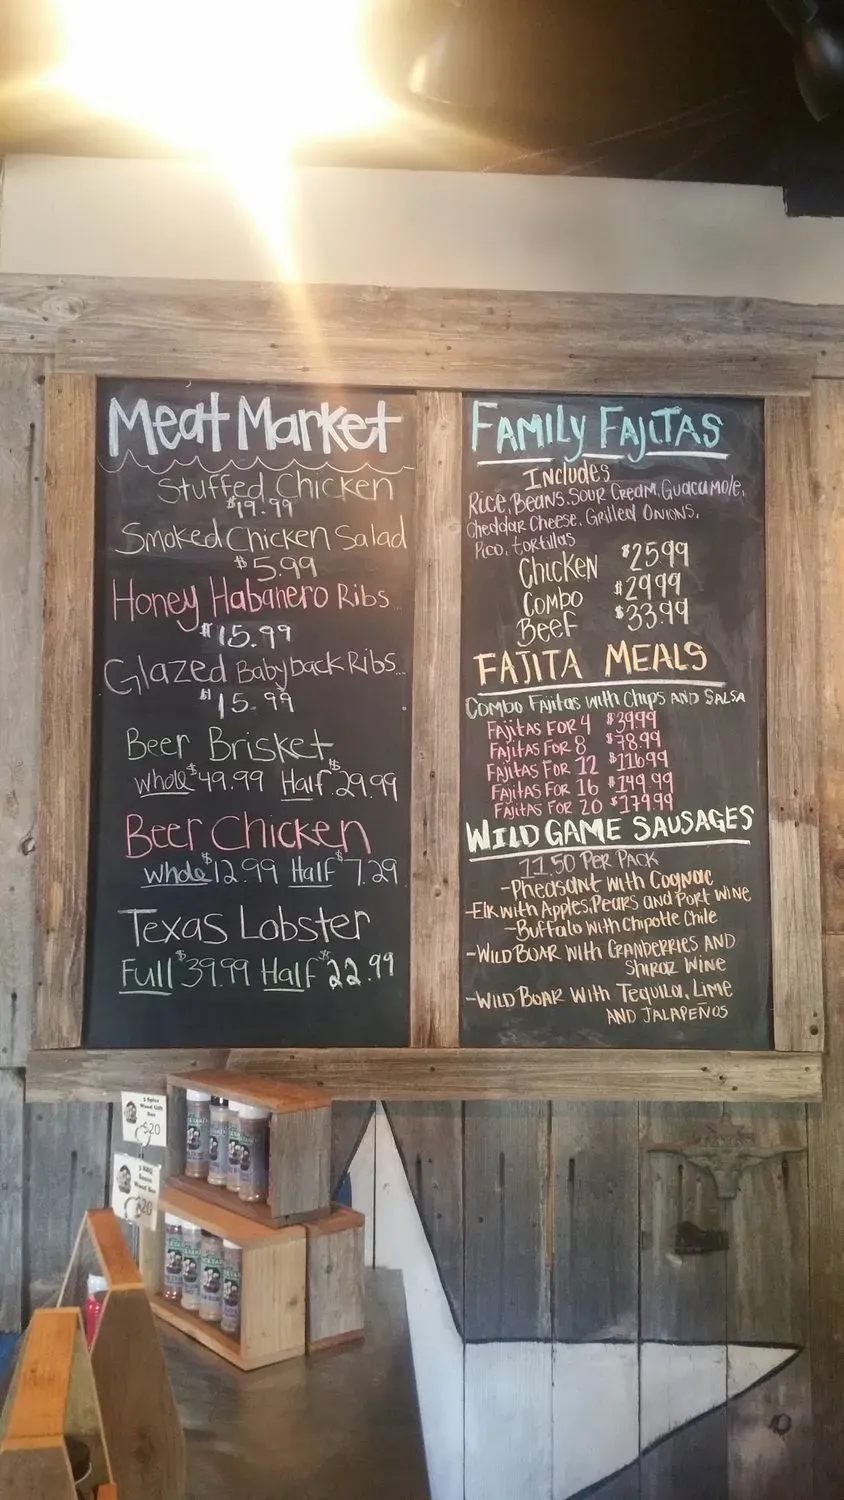 Meat Market
Stuffed Chicken
$19.99
Smoked Chicken Salad
$5.99
Honey Habanero Ribs...
$15.99
Glazed Babyback Ribs...
$15.99
Beer Brisket
Whole $49.99 Half $29.99
Beer Chicken
Whole $12.99 Half $7.29
Texas Lobster
Full $39.99 Half $22.99
FAMILY FAJITAS
Includes
Rice, Beans, Sour Cream, Guacamole,
Cheddar Cheese, Grilled Onions,
Pico, tortillas
Chicken $25.99
Combo $29.99
Beef $33.99
FAJITA MEALS
Combo Fajitas with Chips and Salsa
Fajitas For 4 $39.99
Fajitas For 8 $78.99
Fajitas For 12 $116.99
Fajitas For 16 $149.99
Fajitas For 20 $179.99
WILD GAME SAUSAGES
11.50 Per Pack
-Pheasant with Cognac
-Elk with Apples, Pears and Port Wine
-Buffalo with Chipotle Chile
-Wild Boar with Cranberries and
Shiraz Wine
-Wild Boar with Tequila, Lime
and Jalapeños
Wood Gift
Box
$20
BBQ
Sauce
Wood Box
$20